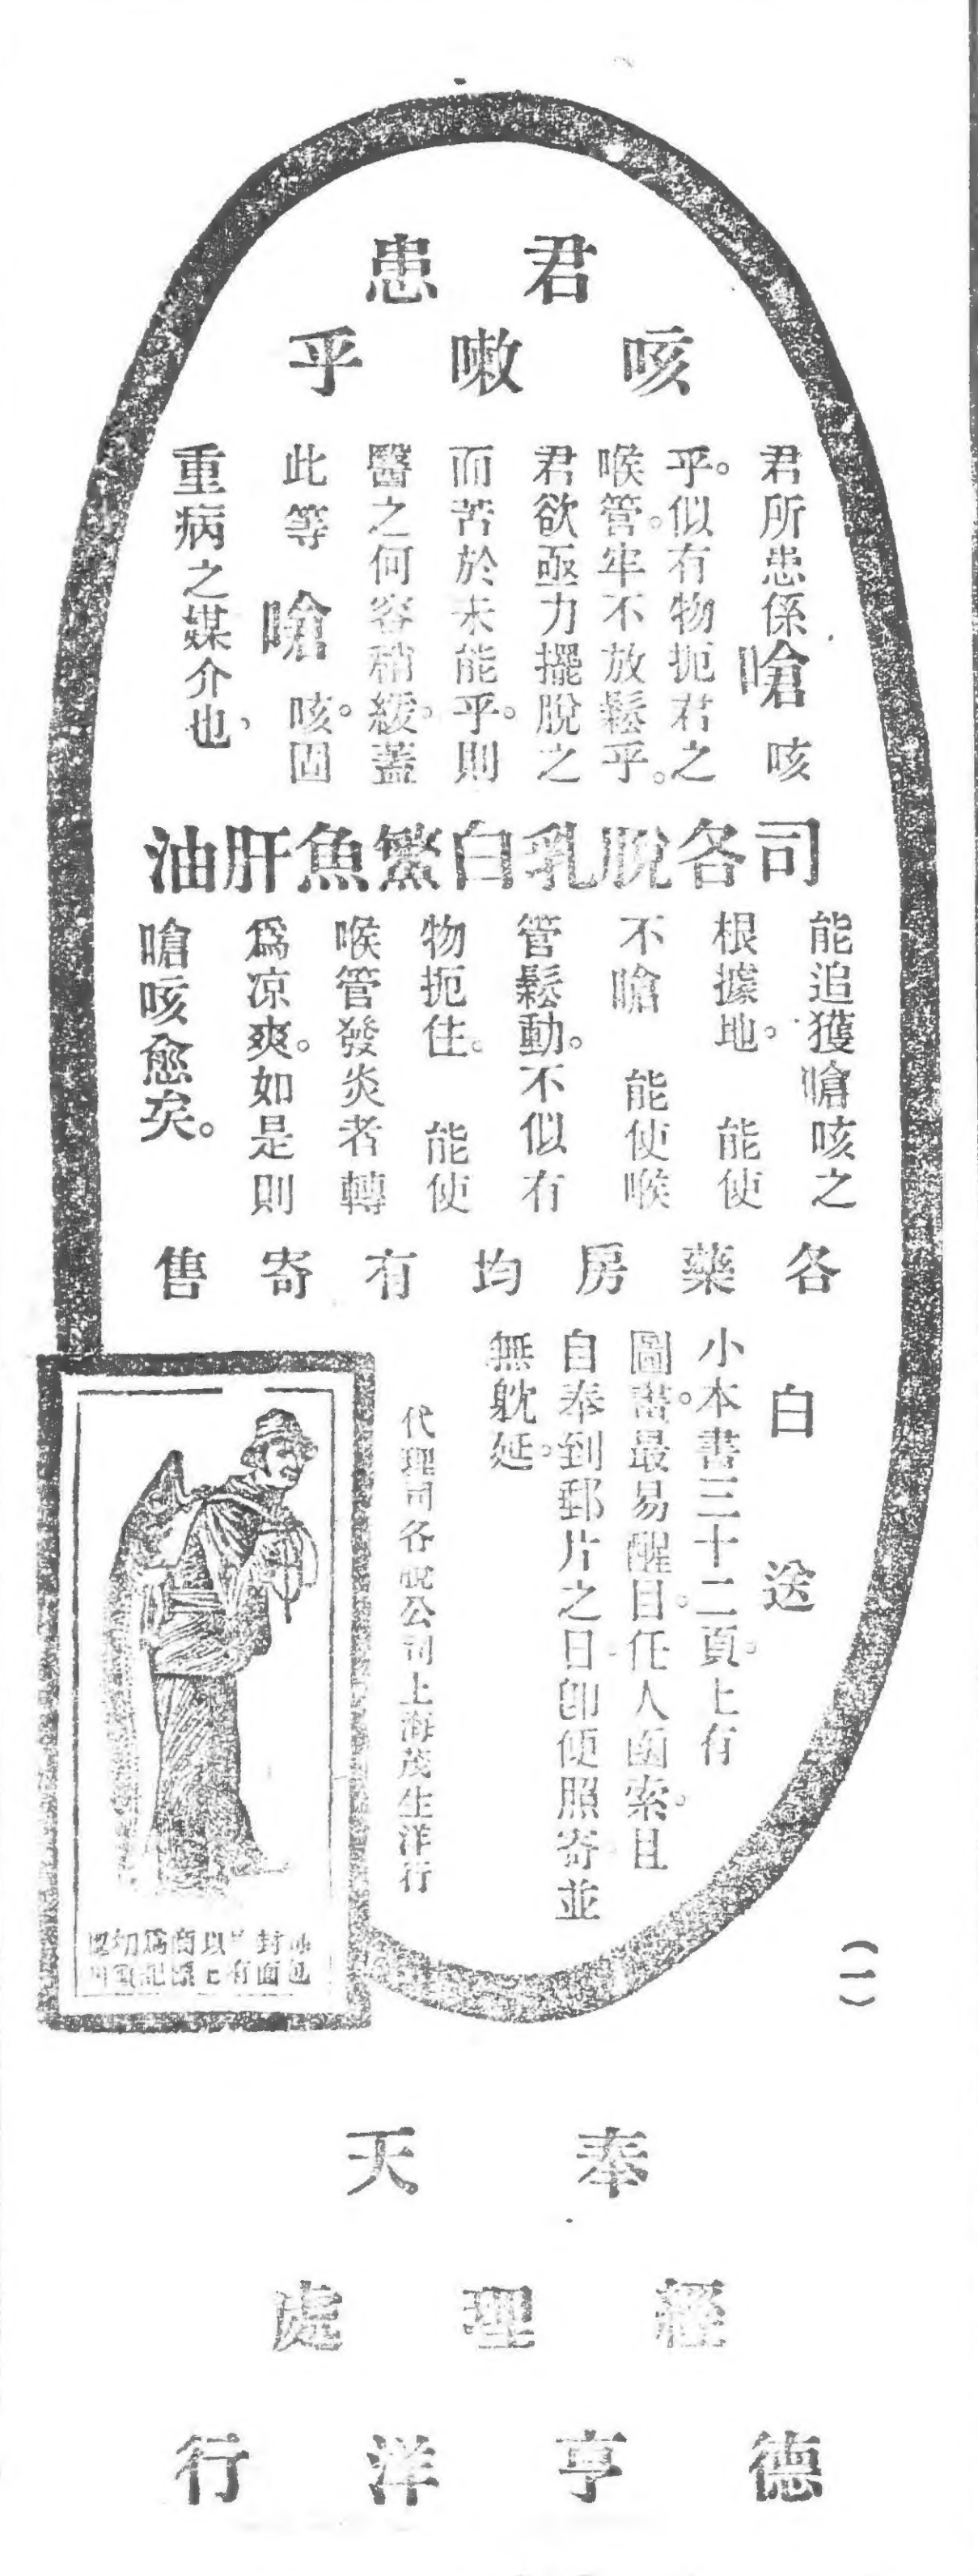 君患
咳嗽乎
君所患係嗆咳
乎。似有物扼君之
喉管。牢不放鬆乎。
君欲亟力擺脫之
而苦於未能乎。則
醫之何容稍緩。蓋
此等嗆咳。固
重病之媒介也、
司各脫乳白鰵魚肝油
能追獲嗆咳之
根據地。能使
不嗆 能使喉
管鬆動。不似有
物扼住。能使
喉管發炎者轉
爲凉爽。如是則
嗆咳愈矣。
各藥房均有寄售
白送
小本書三十二頁。上有
圖畫。最易醒目。任人函索。且
自奉到郵片之日。卽便照寄。並
無躭延。
代理司各脫公司上海茂生洋行
(一)
奉天
經理處
德亨洋行